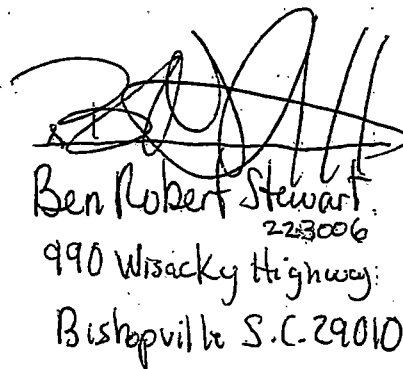 Ben Robert Stewart
223006
990 Wisacky Highway
Bishopville S.C. 29010